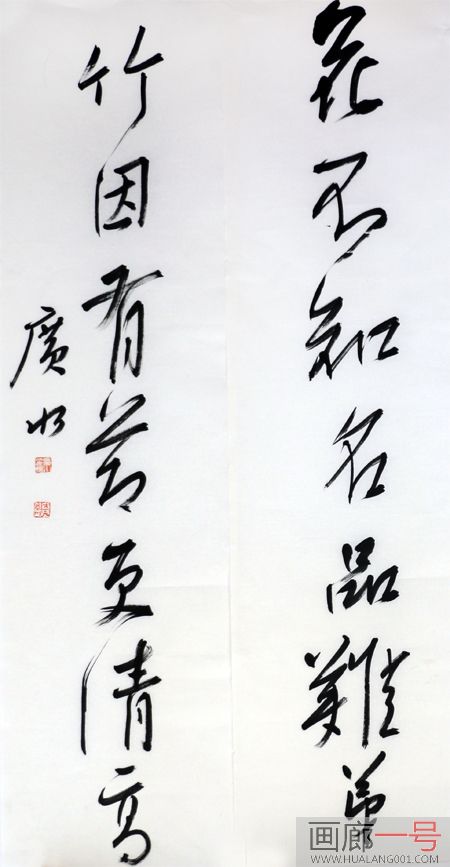 花不知名品難
竹因有節更清高
廣
画廊一号
WWW.HUALANG001.COM